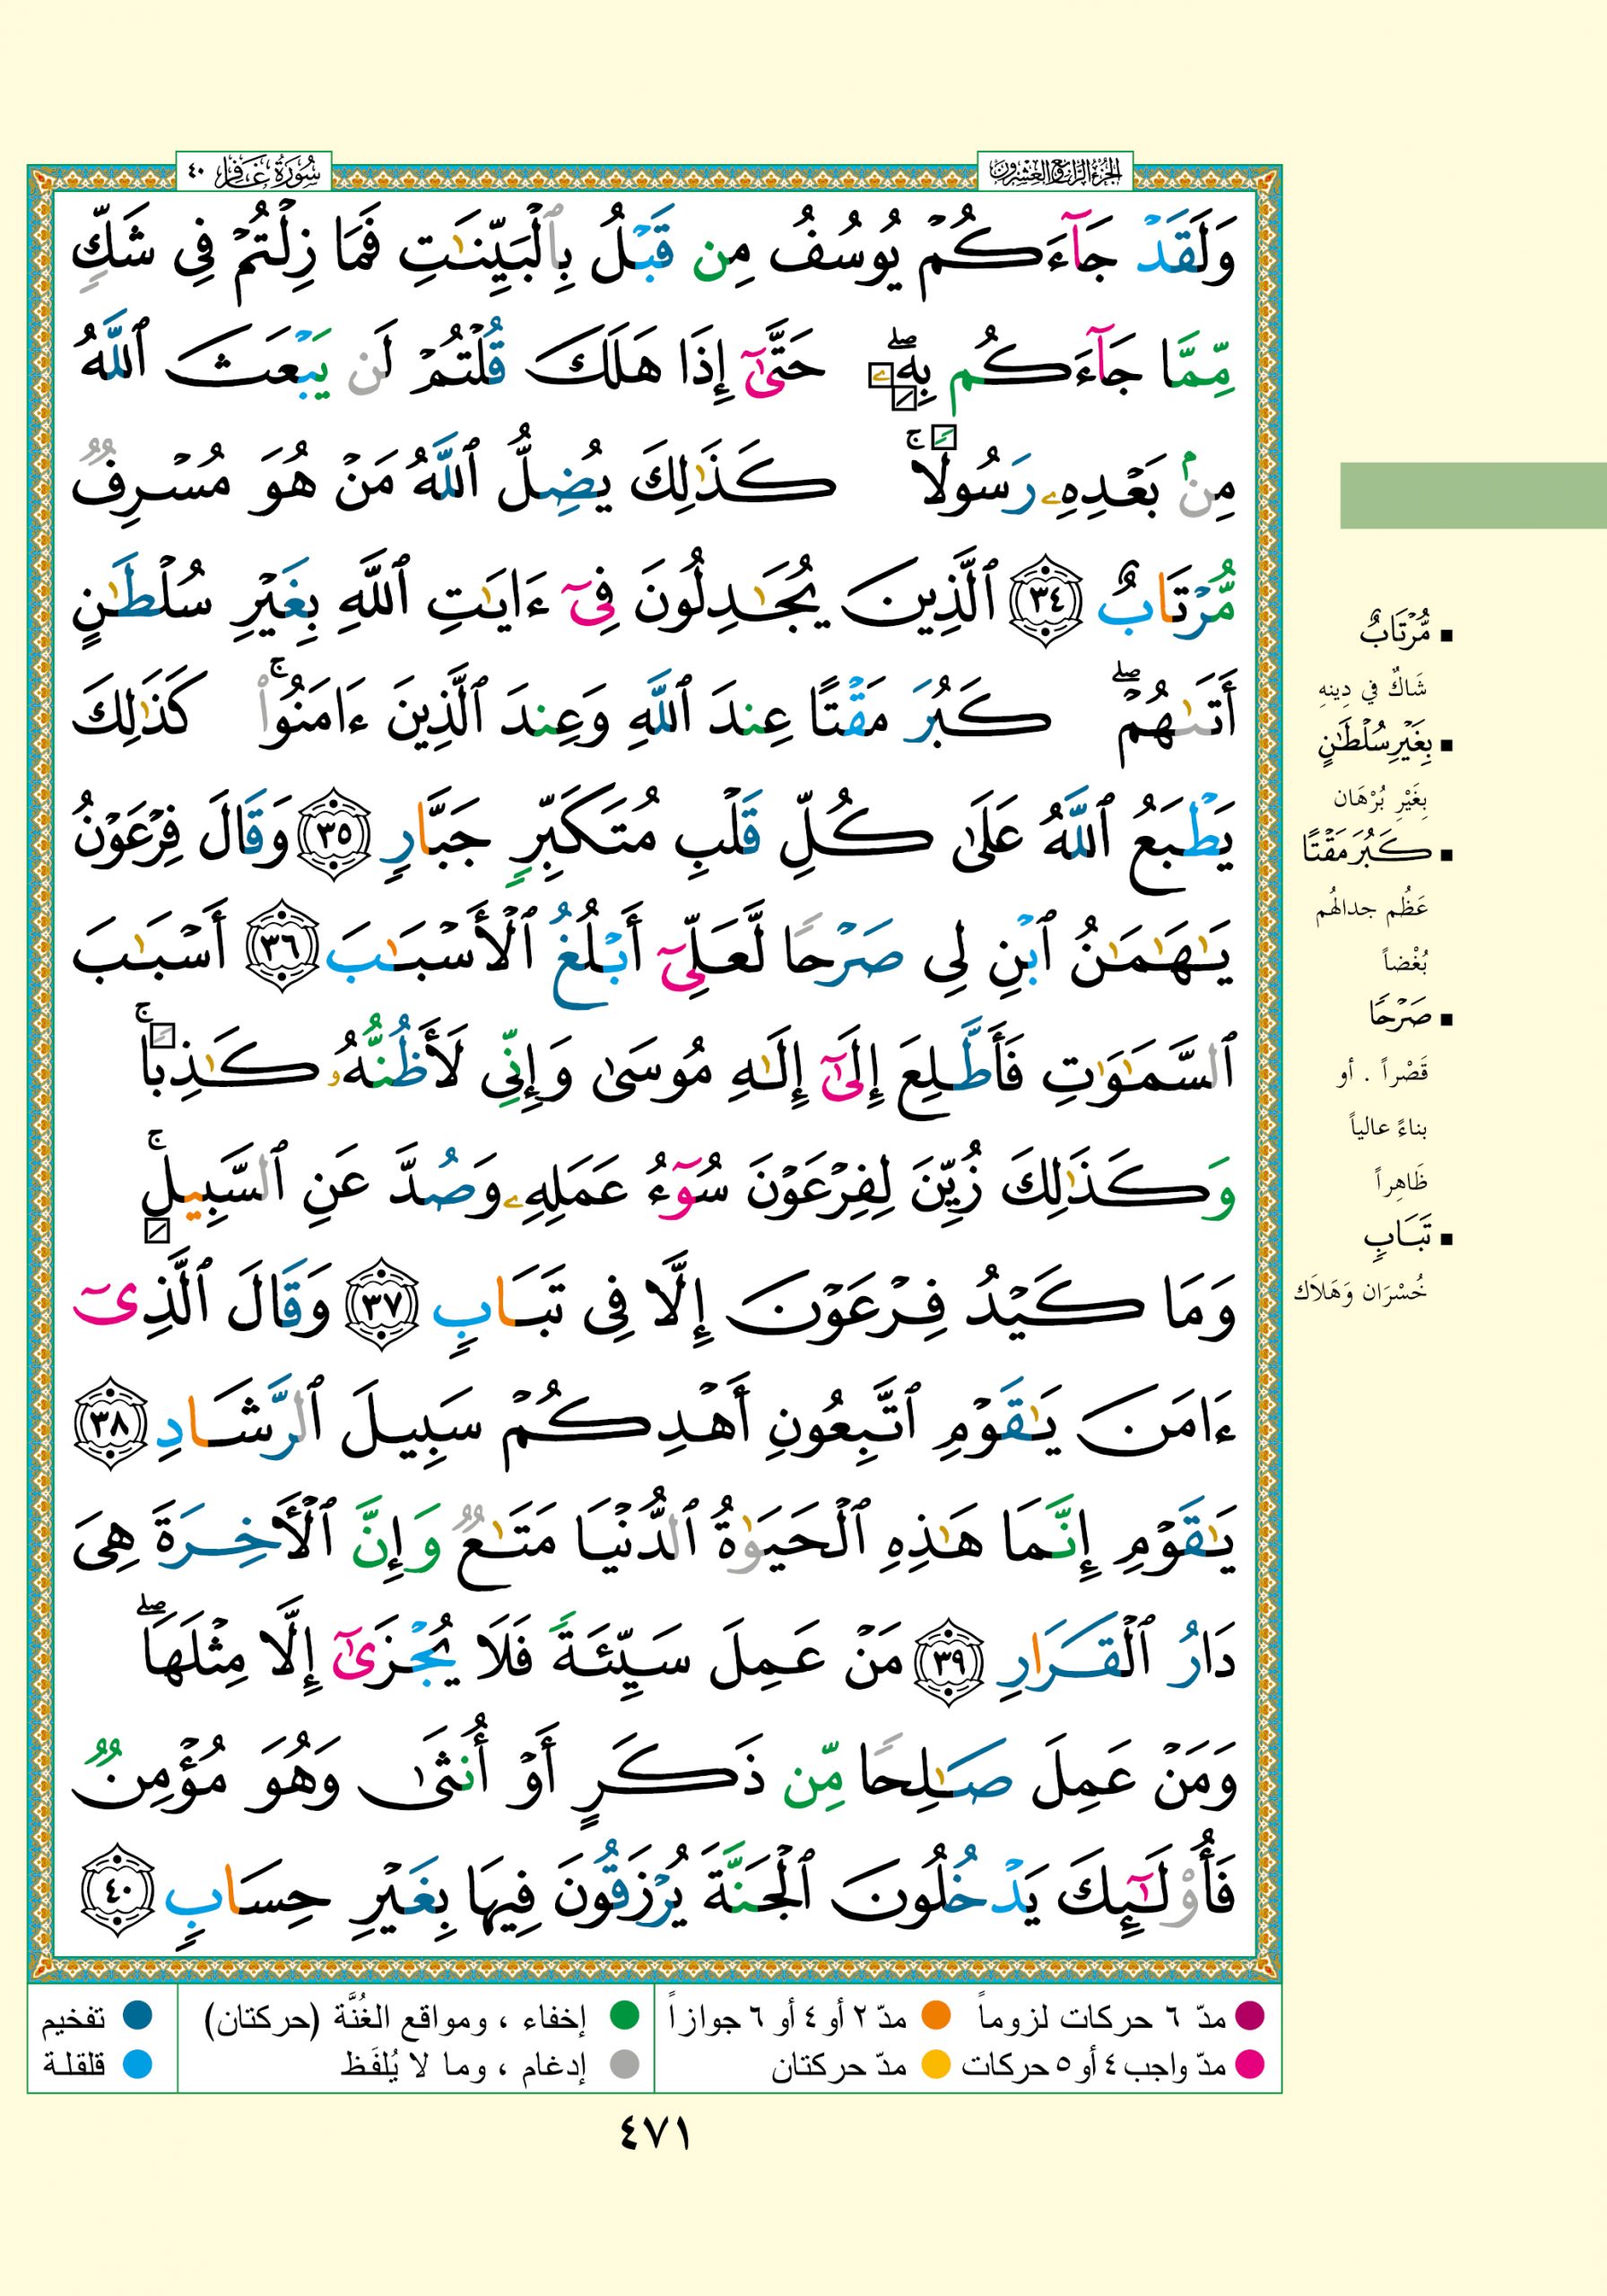 الجزء الرابع والعشرون
سورة غافر ٤٠
وَلَقَدْ جَآءَكُمْ يُوسُفُ مِن قَبْلُ بِٱلْبَيِّنَٰتِ فَمَا زِلْتُمْ فِى شَكٍّ
مِّمَّا جَآءَكُم بِهِۦۖ حَتَّىٰٓ إِذَا هَلَكَ قُلْتُمْ لَن يَبْعَثَ ٱللَّهُ
مِنۢ بَعْدِهِۦ رَسُولًاۚ كَذَٰلِكَ يُضِلُّ ٱللَّهُ مَنْ هُوَ مُسْرِفٌ
مُّرْتَابٌ ٣٤ ٱلَّذِينَ يُجَٰدِلُونَ فِىٓ ءَايَٰتِ ٱللَّهِ بِغَيْرِ سُلْطَٰنٍ
أَتَىٰهُمْۖ كَبُرَ مَقْتًا عِندَ ٱللَّهِ وَعِندَ ٱلَّذِينَ ءَامَنُوا۟ۚ كَذَٰلِكَ
يَطْبَعُ ٱللَّهُ عَلَىٰ كُلِّ قَلْبِ مُتَكَبِّرٍ جَبَّارٍ ٣٥ وَقَالَ فِرْعَوْنُ
يَٰهَٰمَٰنُ ٱبْنِ لِى صَرْحًا لَّعَلِّىٓ أَبْلُغُ ٱلْأَسْبَٰبَ ٣٦ أَسْبَٰبَ
ٱلسَّمَٰوَٰتِ فَأَطَّلِعَ إِلَىٰٓ إِلَٰهِ مُوسَىٰ وَإِنِّى لَأَظُنُّهُۥ كَٰذِبًاۚ
وَكَذَٰلِكَ زُيِّنَ لِفِرْعَوْنَ سُوٓءُ عَمَلِهِۦ وَصُدَّ عَنِ ٱلسَّبِيلِۚ
وَمَا كَيْدُ فِرْعَوْنَ إِلَّا فِى تَبَابٍ ٣٧ وَقَالَ ٱلَّذِىٓ
ءَامَنَ يَٰقَوْمِ ٱتَّبِعُونِ أَهْدِكُمْ سَبِيلَ ٱلرَّشَادِ ٣٨
يَٰقَوْمِ إِنَّمَا هَٰذِهِ ٱلْحَيَوٰةُ ٱلدُّنْيَا مَتَٰعٌ وَإِنَّ ٱلْءَاخِرَةَ هِىَ
دَارُ ٱلْقَرَارِ ٣٩ مَنْ عَمِلَ سَيِّئَةً فَلَا يُجْزَىٰٓ إِلَّا مِثْلَهَاۖ
وَمَنْ عَمِلَ صَٰلِحًا مِّن ذَكَرٍ أَوْ أُنثَىٰ وَهُوَ مُؤْمِنٌ
فَأُو۟لَٰٓئِكَ يَدْخُلُونَ ٱلْجَنَّةَ يُرْزَقُونَ فِيهَا بِغَيْرِ حِسَابٍ ٤٠
▪ مُّرْتَابٌ
شَاكٌ في دِينهِ
▪ بِغَيْرِ سُلْطَٰنٍ
بِغَيْرِ بُرْهَان
▪ كَبُرَ مَقْتًا
عَظُم جدالهُم
بُغْضاً
▪ صَرْحًا
قَصْراً . أو
بناءً عالياً
ظَاهِراً
▪ تَبَابٍ
خُسْرَان وَهَلاَك
مدّ ٦ حركات لزوماً مدّ ٢ أو ٤ أو ٦ جوازاً إخفاء ، ومواقع الغُنَّة (حركتان) تفخيم
مدّ واجب ٤ أو ٥ حركات مدّ حركتان إدغام ، وما لا يُلفَظ قلقلة
٤٧١